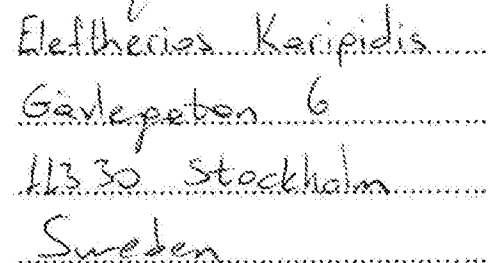 Eleftherios Karipidis
Gävlegatan 6
113 30 Stockholm
Sweden